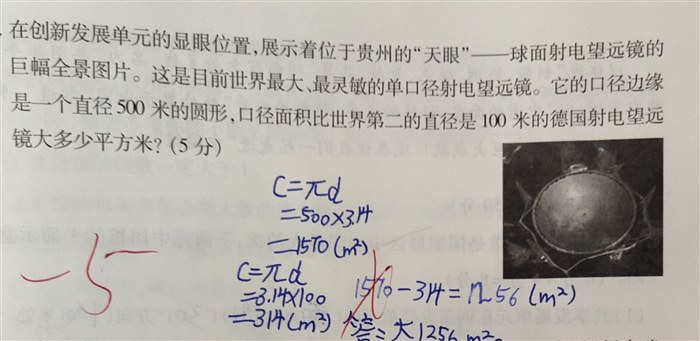 在创新发展单元的显眼位置,展示着位于贵州的“天眼”——球面射电望远镜的
巨幅全景图片。这是目前世界最大、最灵敏的单口径射电望远镜。它的口径边缘
是一个直径 500 米的圆形,口径面积比世界第二的直径是 100 米的德国射电望远
镜大多少平方米? (5 分)
C=πd
=500×3.14
=1570(m²)
C=πd
=3.14×100
=314(m²)
1570-314=12.56(m²)
答:大1256m²。
-5